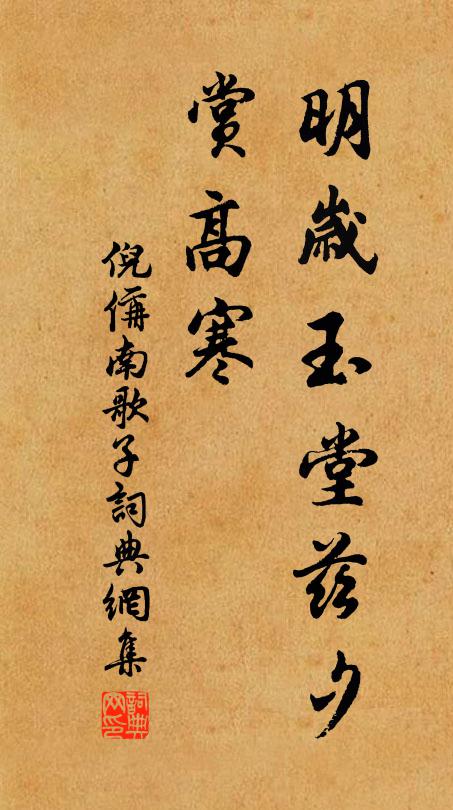 明歲玉堂茲夕
賞高寒
倪偁南歌子詞典網集
詞典网印